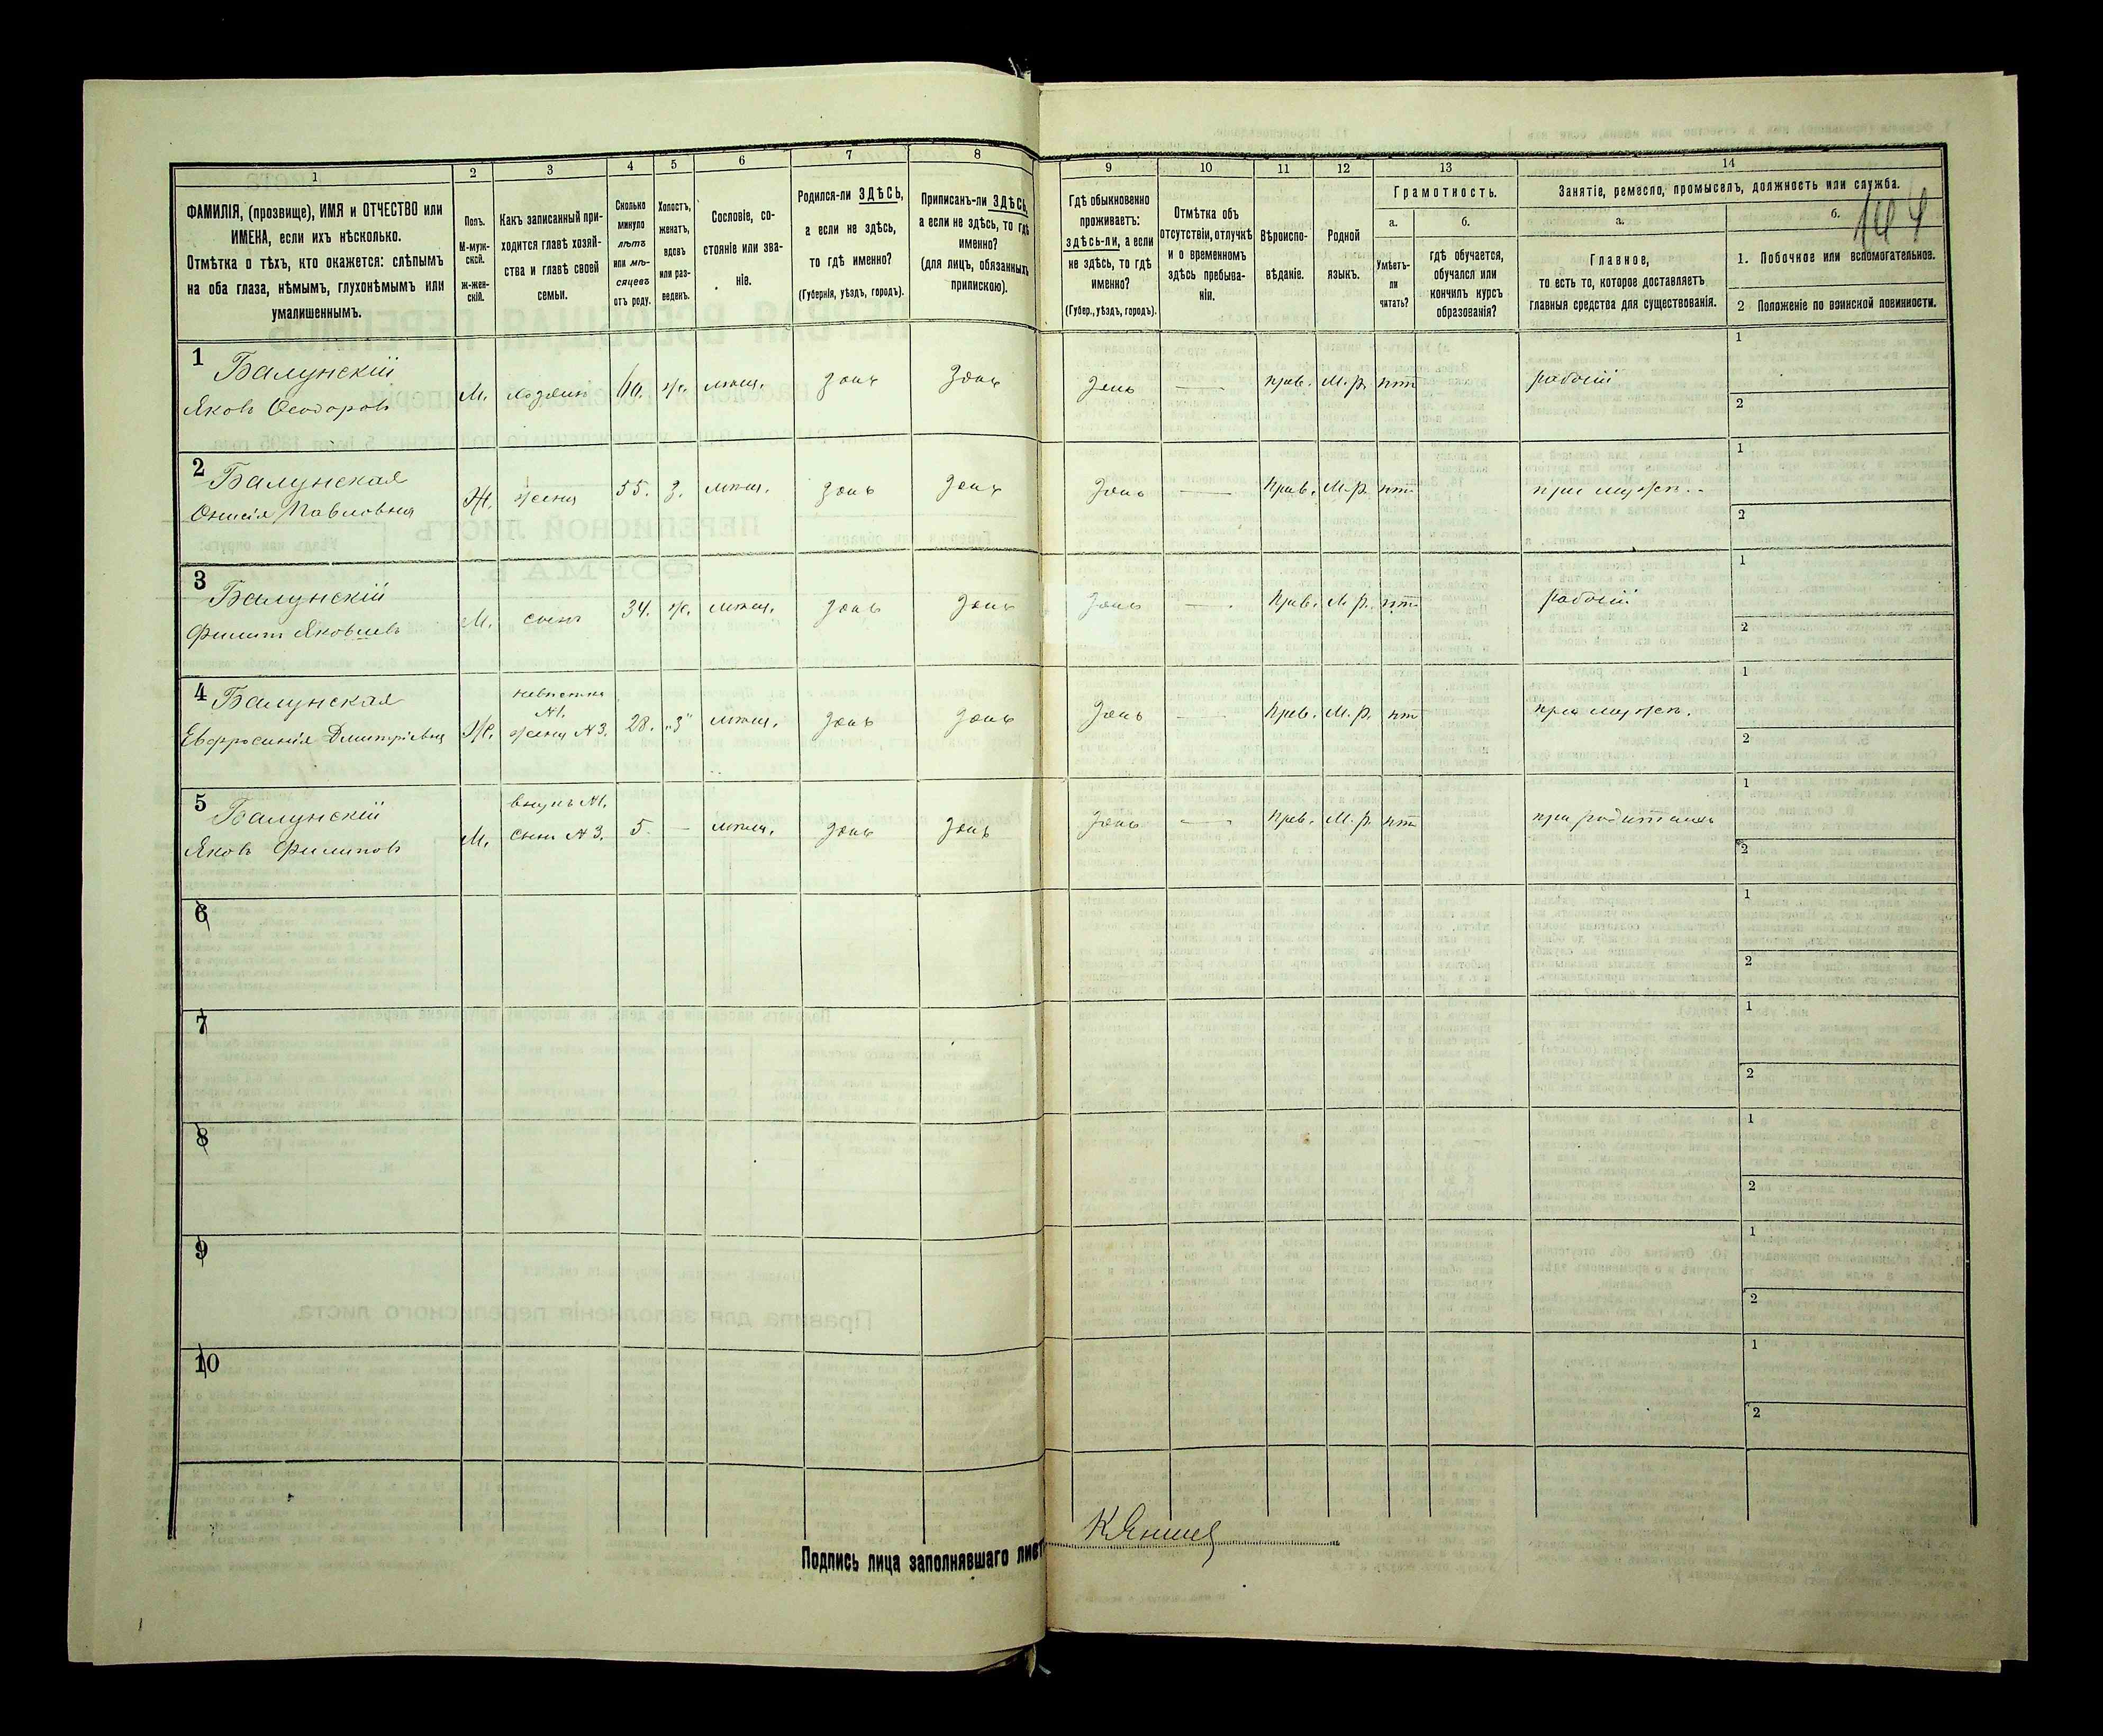 1
ФАМИЛІЯ, (прозвище), ИМЯ и ОТЧЕСТВО или
ИМЕНА, если ихъ нѣсколько.
Отмѣтка о тѣхъ, кто окажется: слѣпымъ
на оба глаза, нѣмымъ, глухонѣмымъ или
умалишеннымъ.
2
Полъ.
М-муж-
ской.
ж-жен-
скій.
3
Какъ записанный при-
ходится главѣ хозяй-
ства и главѣ своей
семьи.
4
Сколько
минуло
лѣтъ
или мѣ-
сяцевъ
отъ роду.
5
Холостъ,
женатъ,
вдовъ
или раз-
веденъ.
6
Сословіе, со-
стояніе или зва-
ніе.
7
Родился-ли ЗДѢСЬ,
а если не здѣсь,
то гдѣ именно?
(Губернія, уѣздъ, городъ).
8
Приписанъ-ли ЗДѢСЬ,
а если не здѣсь, то гдѣ
именно?
(для лицъ, обязанныхъ
припискою).
9
Гдѣ обыкновенно
проживаетъ:
здѣсь-ли, а если
не здѣсь, то гдѣ
именно?
(Губер., уѣздъ, городъ).
10
Отмѣтка объ
отсутствіи, отлучкѣ
и о временномъ
здѣсь пребыва-
ніи.
11
Вѣроиспо-
вѣданіе.
12
Родной
языкъ.
13
Грамотность.
а.
Умѣетъ-
ли
читать?
б.
гдѣ обучается,
обучался или
кончилъ курсъ
образованія?
14
Занятіе, ремесло, промыселъ, должность или служба.
а.
Главное,
то есть то, которое доставляетъ
главныя средства для существованія.
б.
1. Побочное или вспомогательное.
2 Положеніе по воинской повинности.
1
Балунскій
Яковъ Ѳеодоровъ
М. хозяинъ 60. ж. мѣщ. здѣсь здѣсь
здѣсь — прав. М.р. нѣт рабочій
1
2
2
Балунская
Онисія Павловна
Ж. жена 55. з. мѣщ. здѣсь здѣсь
здѣсь — прав. М.р. нѣт при мужѣ.
1
2
3
Балунскій
Филипп Яковлевъ
М. сынъ 34. ж. мѣщ. здѣсь здѣсь
здѣсь — прав. М.р. нѣт рабочій
1
2
4
Балунская
Евфросинія Дмитріевна
Ж. невѣстка
№1.
жена №3. 28. „З" мѣщ. здѣсь здѣсь
здѣсь — прав. М.р. нѣт при мужѣ.
1
2
5
Балунскій
Яковъ Филиповъ
М. внукъ №1.
сынъ №3. 5. — мѣщ. здѣсь здѣсь
здѣсь — прав. М.р. нѣт при родителяхъ
1
2
6
1
2
7
1
2
8
1
2
9
1
2
10
1
2
Подпись лица заполнявшаго лист